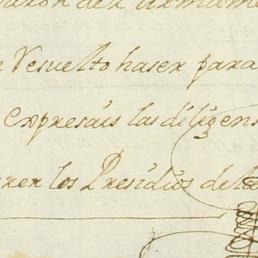 Varon del Armame
n Resuelto haser para
expresais las diligens
rrer los Presidios de la